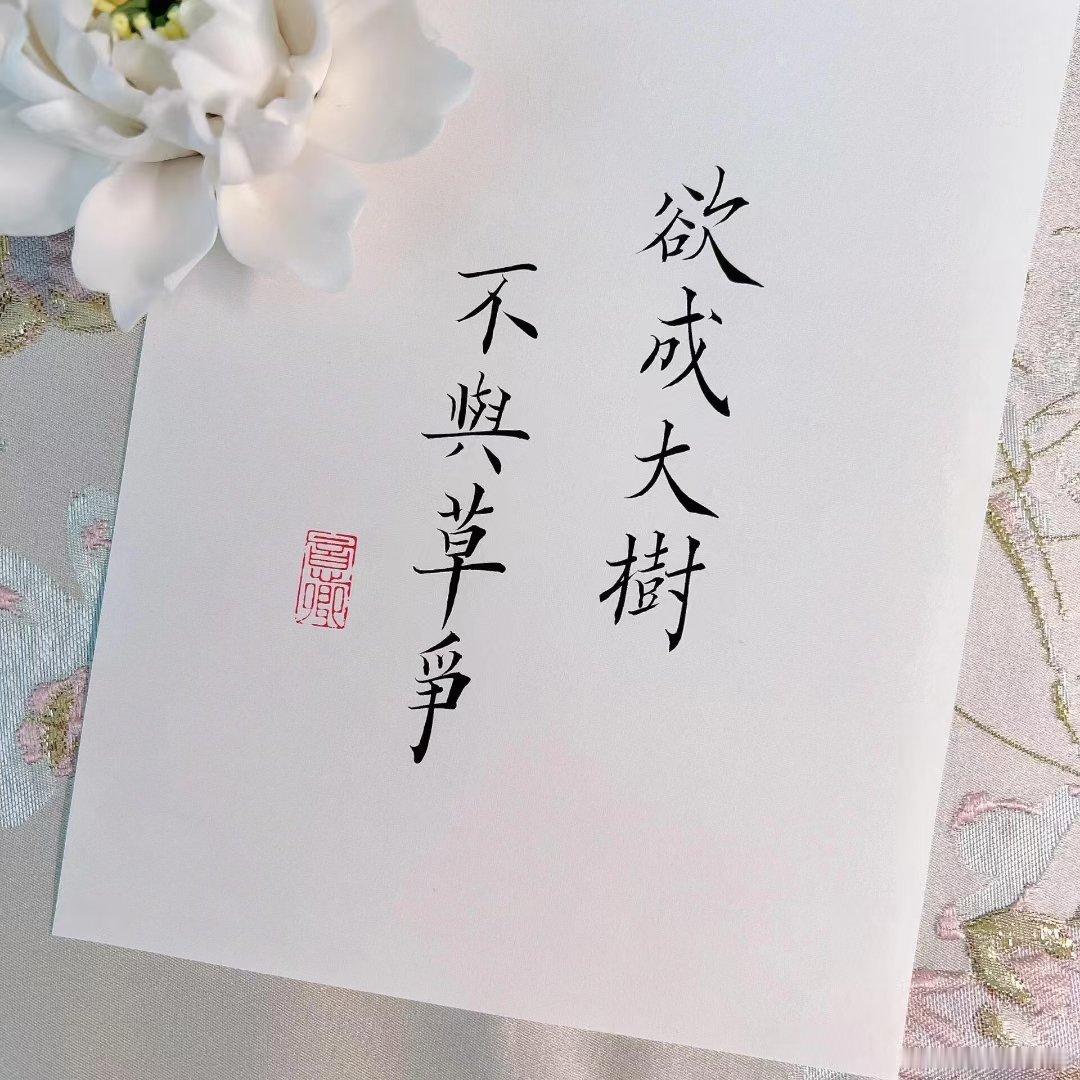 欲成大樹
不與草爭